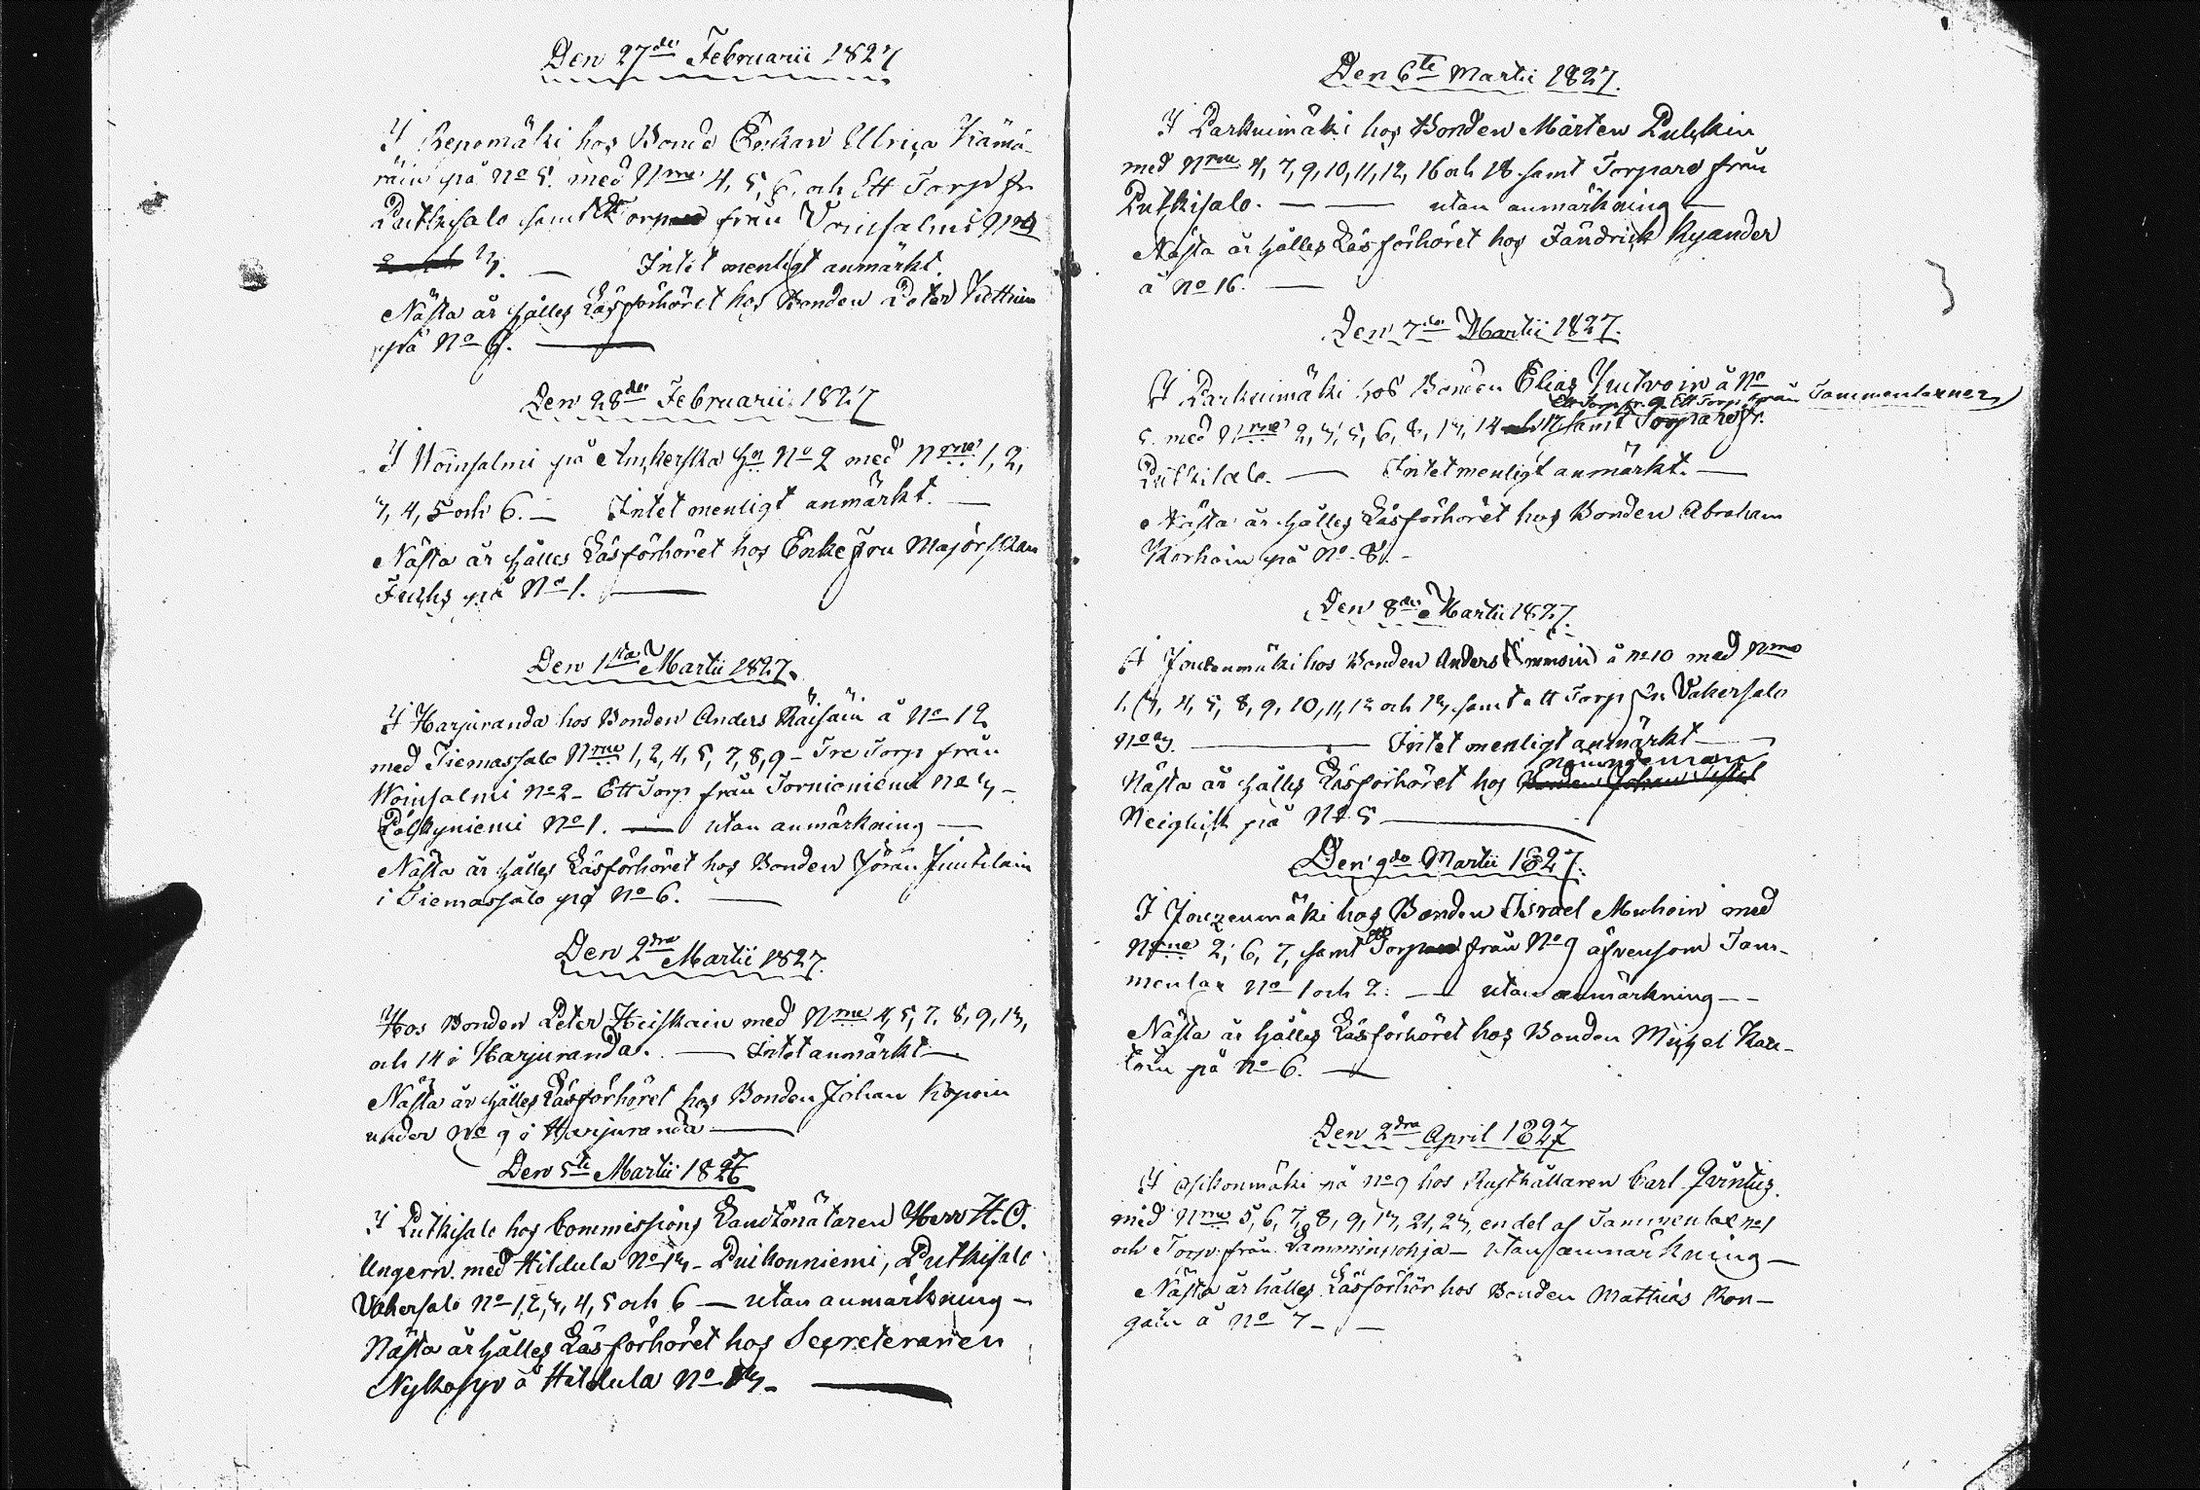 Den 27de Februarii 1827
I Repomäki hos Bonde Enkan Ulrica Kämä-
räin på No 5. med Nrne 4, 5, 6, och Ett Torp fr.
Putkisalo samt Ett Torp från Voinsalmi No
3. — Intet menligt anmärkt.
Nästa år hålles Läsförhöret hos Bonden Peter
på No 6. —
Den 28de Februarii 1827
I Woinsalmi på No 2 med Nrne 1, 2,
3, 4, 5 och 6. — Intet menligt anmärkt. —
Nästa år hålles Läsförhöret hos Enke Fru Majorskan
Fuchs på No 1. —
Den 1sta Martii 1827.
I Harjuranda hos Bonden Anders Räisäin å No 12
med Tiemassalo Nrne 1, 2, 4, 5, 7, 8, 9 – Tre Torp från
Woinsalmi No 2 – Ett Torp från Tornioniemi No 3 –
Pölkyniemi No 1. — utan anmärkning —
Nästa år hålles Läsförhöret hos Bonden Jöran Juutilain
i Tiemassalo på No 6. —
Den 2dra Martii 1827.
Hos Bonden Peter Heiskain med Nrne 4, 5, 7, 8, 9, 13,
och 14 i Harjuranda. — Intet anmärkt —
Nästa år hålles Läsförhöret hos Bonden Johan Kopoin
under No 9 i Harjuranda —
Den 5te Martii 1827
I Putkisalo hos Commissions Landtmätaren Herr H. O.
Ungern. med Hildula No 13 – Puikonniemi, Putkisalo
Vakersalo No 1, 2, 3, 4, 5 och 6 — utan anmärkning –
Nästa år hålles Läsförhöret hos Secreteraren
Nykopp å Hildula No 13 – —
Den 6te Martii 1827.
I Parkuimäki hos Bonden Mårten Pulkkin
med Nrne 4, 7, 9, 10, 11, 12, 16 och 18 samt Torpare från
Putkisalo. — — utan anmärkning —
Nästa år hålles Läsförhöret hos Fändrick Kyander
å No 16. —
Den 7de Martii 1827.
I Parkuimäki hos Bonden Elias Juutvoin å No
Ett Torp fr. 9. Ett Torp från Tammenlax No 2
5. med Nrne 2, 3, 5, 6, 8, 13, 14 och 17 samt Torpare fr.
Putkisalo. — Intet menligt anmärkt. —
Nästa år hålles Läsförhöret hos Bonden Abraham
Korhoin på No 8. –
Den 8de Martii 1827.
I Joukenmäki hos Bonden Anders Immoin å No 10 med Nrne
1, 3, 4, 5, 8, 9, 10, 11, 12 och 13, samt ett Torp fr. Vakersalo
No 3. — Intet menligt anmärkt —
Nämndeman
Nästa år hålles Läsförhöret hos
Neiglick på No 5 —
Den 9de Martii 1827.
I Joukenmäki hos Bonden Israel Muhoin med
Nrne 2, 6, 7, samt ett Torp från No 9 äfvensom Tam-
menlax No 1 och 2. — utan anmärkning – –
Nästa år hålles Läsförhöret hos Bonden Michel Kau-
toin på No 6. —
Den 2dra April 1827
I Asikonmäki på No 9 hos Rusthållaren Carl
med Nrne 5, 6, 7, 8, 9, 13, 21, 23, en del af Tammenlax No 1
och Torp från Lamminpohja – utan anmärkning —
Nästa år hålles Läsförhör hos Bonden Matthias Kon-
gäin å No 7 – —